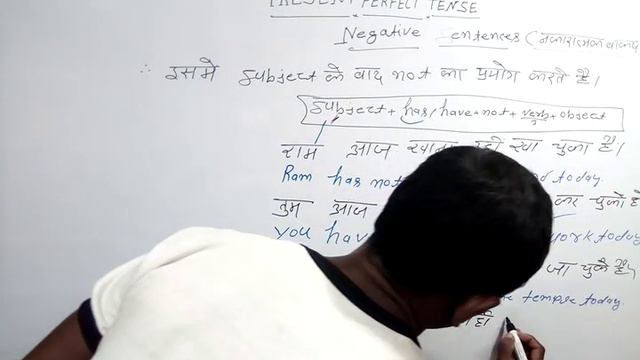 PRESENT PERFECT TENSE
Negative Sentences (नकारात्मक वाक्य
∴ इसमे Subject के बाद not का प्रयोग करते है।
Subject + has/have + not + verb3 + object
राम आज खाना नही खा चुका है।
Ram has not today.
तुम आज कर चुके
you have work today
जा चुके है।
temple today.